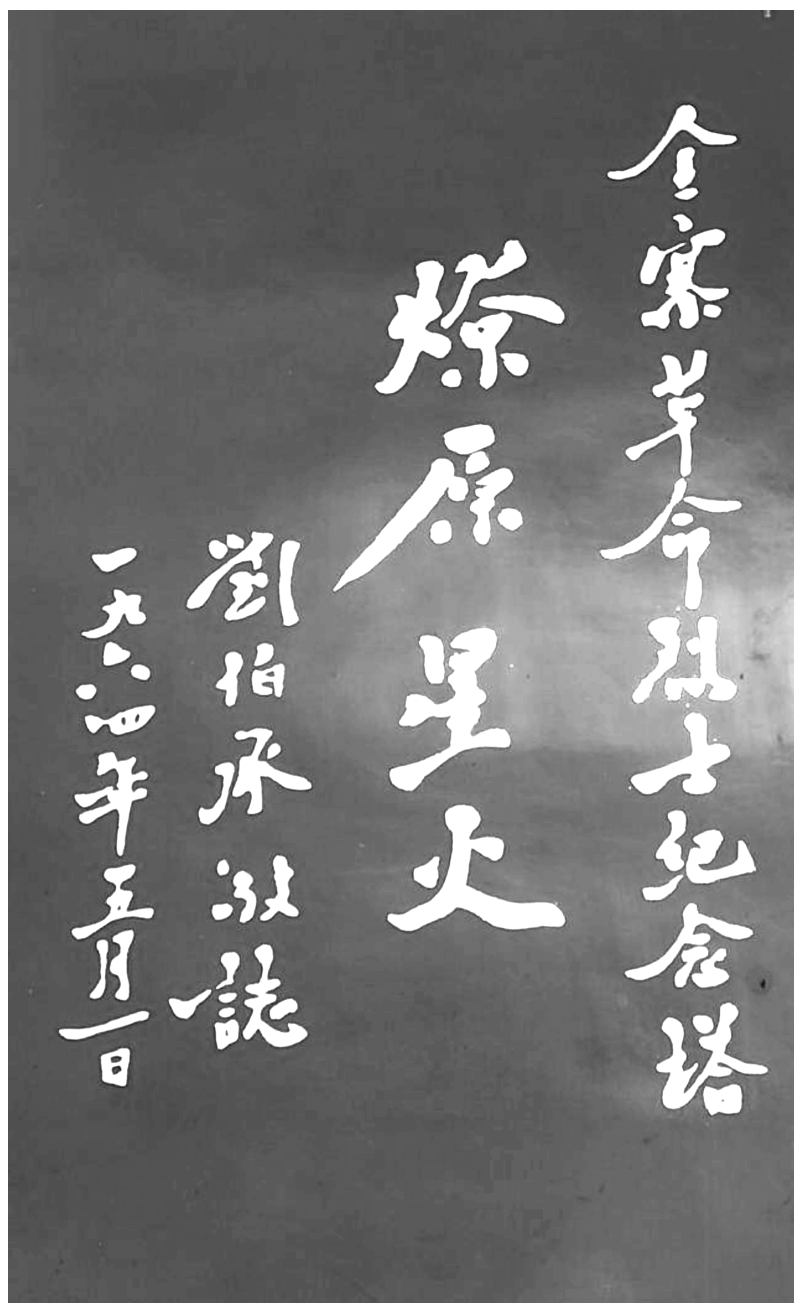 金寨革命烈士纪念塔
燎原星火
劉伯承敬誌
一九六四年五月一日